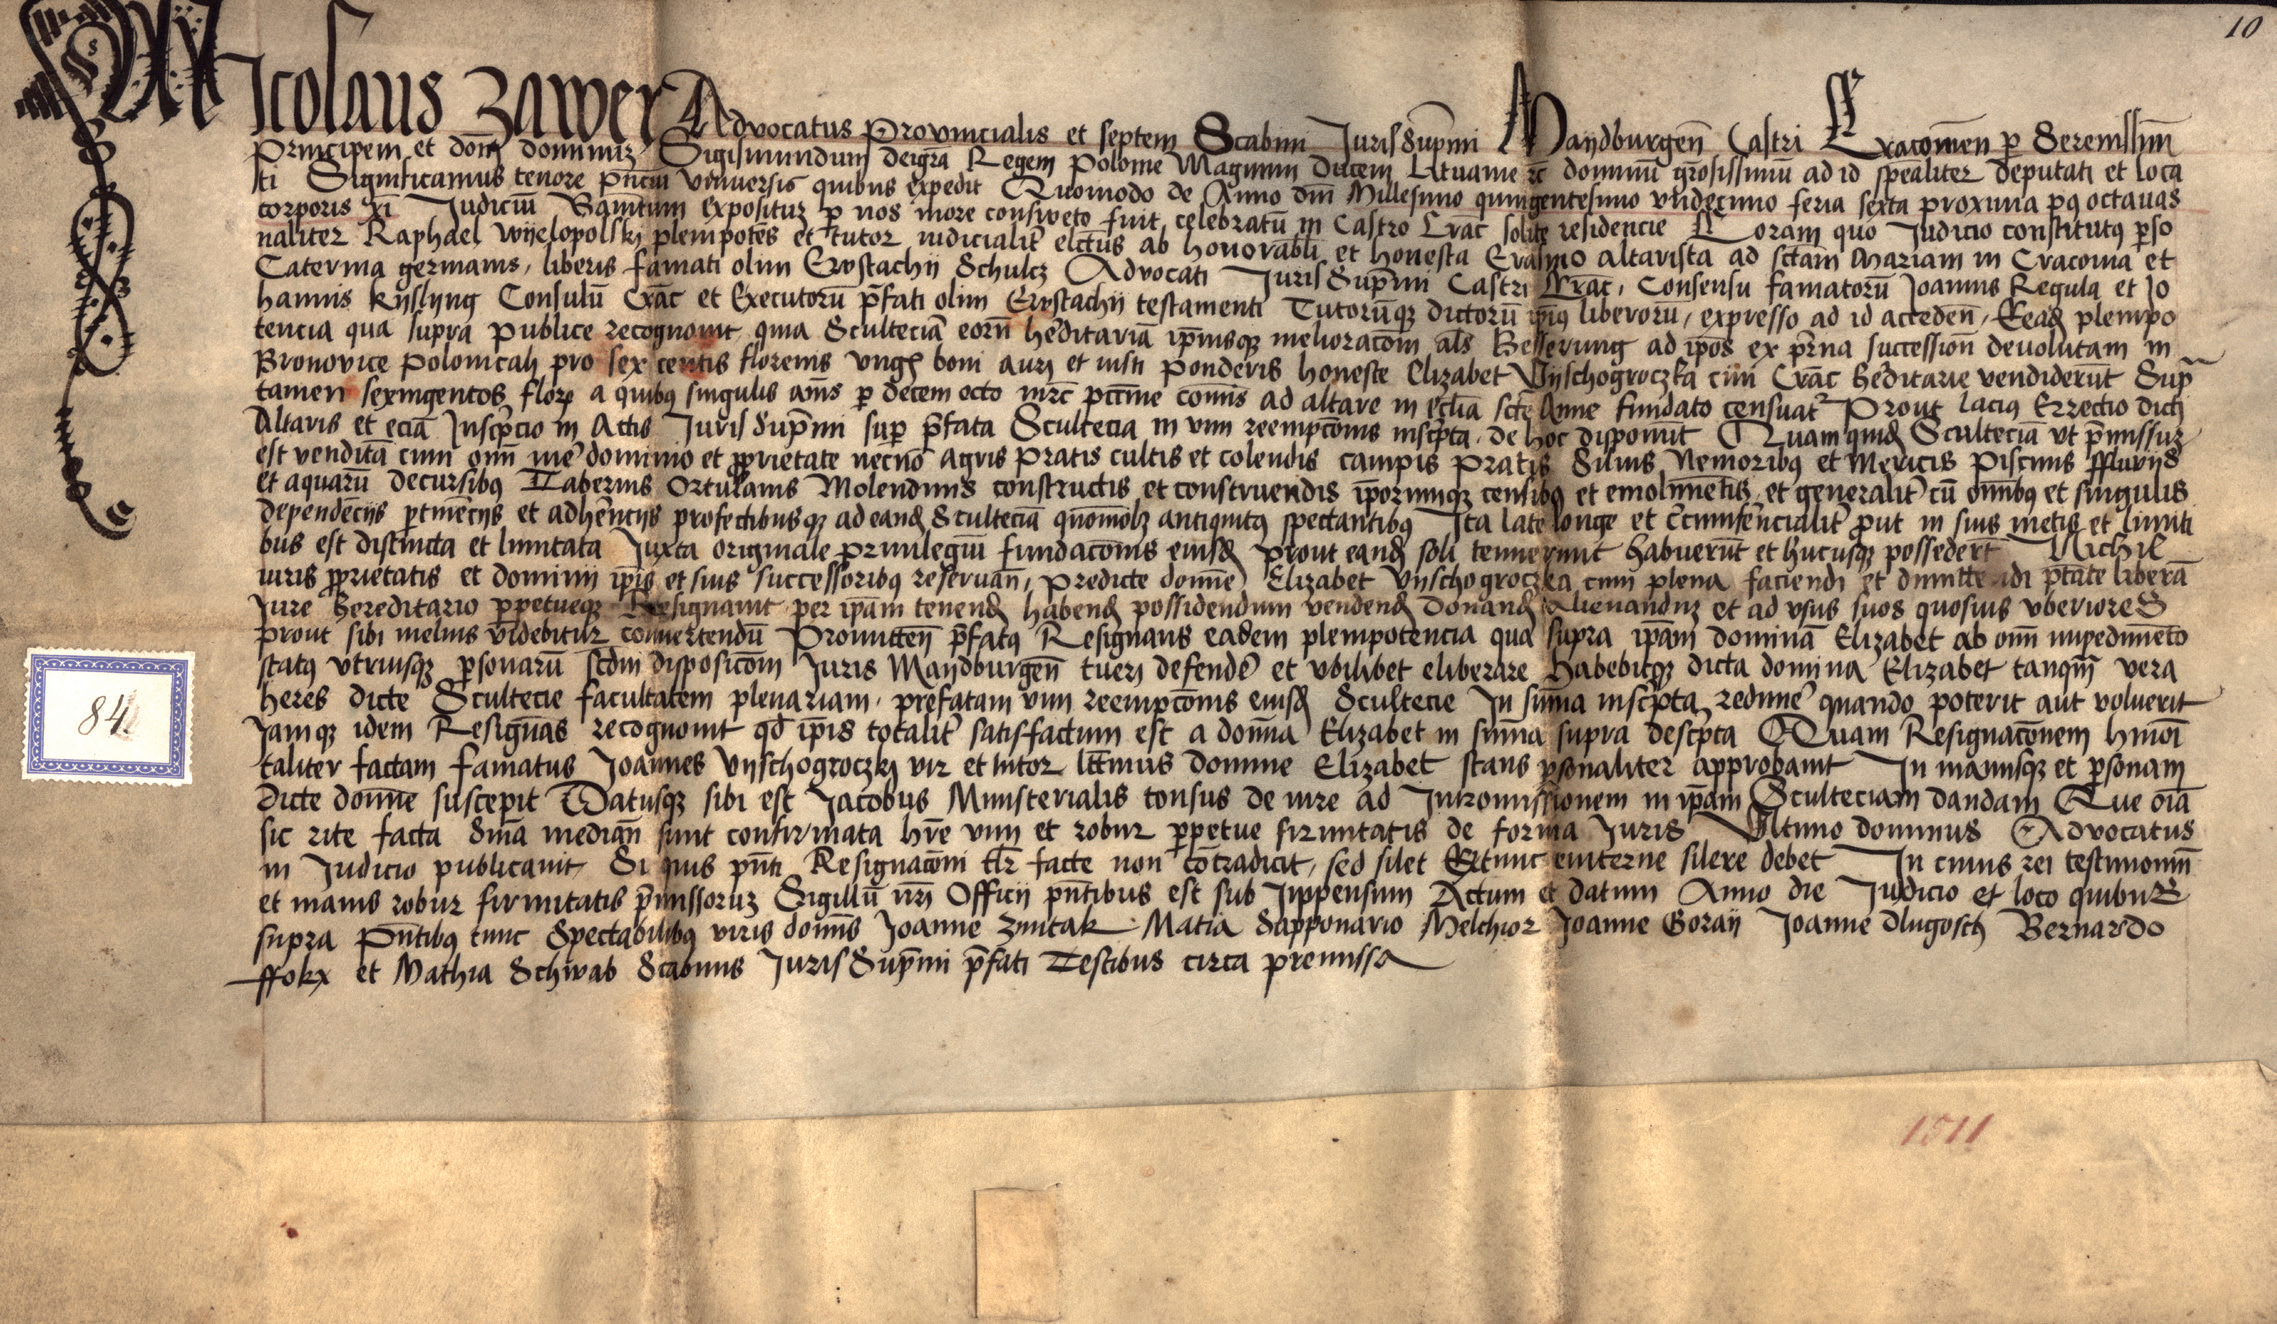 10
Nicolaus Zawer Advocatus Provincialis et septem Scabini Juris supmi Maydburgen Castri Cracovien p Serenissim
Principem et dom dominuz Sigismundum dei gra Regem Polonie Magnum Ducem Lituanie rc dominu grosissimu ad id spealiter deputati et loca
ti Significamus tenore pntiu Universis quibus expedit Quomodo de Anno dm Millesimo quingentesimo undecimo feria sexta proxima pq octavas
corporis xi Judiciu Banitum expositu p nos more consweto fuit celebratu in Castro Crac solite residencie Coram quo Judicio constitutq pso
naliter Raphael wyelopolskj plempotes et tutor iudicialit electus ab honorabli et honesta Erasmo altarista ad sctam Mariam in Cracovia et
Caterina germanis, liberis famati olim Ewstachij Schulcz Advocati Juris supmi Castri Crac, Consensu famatoru Joannis Regula et Jo
hannis Kyslyng Consulu Crac et Executoru pfati olim Ewstachij testamenti Tutoruqz dictoru ipius liberoru, expresso ad id acceden, Eead plempo
tencia qua supra publice recognovit, quia Scultecia eoru heditaria ipiusqz melioracom als Besserung ad ipos ex prna succession devolutam in
Bronovice polonicali pro sex centis florenis Ungl boni aurj et iusti ponderis honeste Elizabet Vyschogroczka civi Crac heditarie vendiderut Sup
tamen sexingentos flore a quibq singulis anis p decem octo mrc pecunie comis ad altare in ecclia scte Anne fundato censuat Prout lacius Errectio dicti
Altaris et ecia Inscpcio in Actis Juris supmi sup pfata Scultecia in vim reempcois inscpta, de hoc disponut Quam quid Scultecia ut pmissuz
est vendita cum omi iure dominio et proprietate necno agris pratis cultis et colendis campis pratis Silvis Nemoribq et Mericis piscinis ffluvijs
et aquaru decursibq Tabernis Ortulanis Molendinis constructis et construendis iporumqz censibq et emolimetis, et generalit cu omibq et singulis
dependecijs ptinecijs et adhencijs profectibusqz ad eand Sculteciam quomolz antiquitq spectantibq Ita late longe et ccumferncialit prout in suis metis et limiti
bus est distincta et limitata Juxta originale privilegiu fundacois eiusd prout eand soli tenuerunt habuerut et hucusqz possedert Nichil
iuris proprietatis et dominij ipis et suis successoribq reservan, Predicte domie Elizabet Vyschogroczka cum plena faciendi et dimittendi ptate libera
Jure hereditario ppetueqz Resignavit, per ipam tenend habend possidendum vendend donand Alienanduz et ad usus suos quosvis uberiores
prout sibi melius videbitur convertendu Promitten pfatq Resignans eadem plempotencia qua supra ipam domina Elizabet ab omi impedimeto
statq utriusqz psonaru scdm disposicom Juris Maydburgen tuerj defende et ubilibet eliberare Habebitqz dicta domina Elizabet tanqm vera
heres dicte Scultecie facultatem plenariam, prefatam vim reempcois eiusd Scultecie In suma inscpta redime quando poterit aut voluerit
Jamqz idem Resignas recognovit qd ipis totalit satisfactum est a domna Elizabet in suma supra descpta Quam Resignacionem hmoi
taliter factam famatus Joannes Vyschogroczkj vir et tutor lttimus domine Elizabet stans psonaliter approbavit In manusqz et psonam
dicte domne suscepit Datusqz sibi est Jacobus Ministerialis consus de iure ad Intromissionem in ipam Sculteciam dandam Que oia
sic rite facta dma median sunt confirmata hre vim et robur ppetue firmitatis de forma Juris Ultimo dominus Advocatus
in Judicio publicavit Si quis pnti Resignacom tlr facte non cotradicit, sed silet Extunc eviterne silere debet In cuius rei testimonium
et maius robur firmitatis pmissoruz Sigillu nri Officij pntibus est sub Appensum Actum et datum Anno die Judicio et loco quibus
supra Pntibq tunc Spectabilibq viris domis Joanne zimtak Matia Sapponario Melchior Joanne Goraij Joanne dlugosch Bernardo
ffokx et Mathia Schwab Scabinis Juris supmi pfati Testibus circa premissa
84.
1511